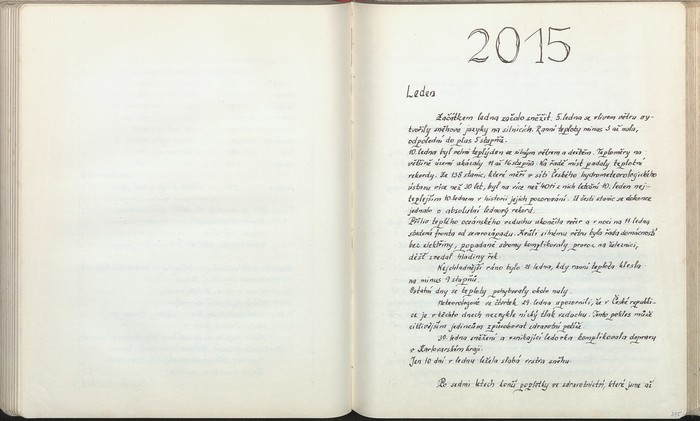 2015
Leden
Začátkem ledna začalo sněžit. 5. ledna se vlivem větru vy-
tvořily sněhové jazyky na silnicích. Ranní teploty minus 3 až nula,
odpolední do plus 5 stupňů.
10. ledna byl velmi teplý den se silným větrem a deštěm. Teploměry na
většině území ukázaly 11 až 16 stupňů. Na řadě míst padaly teplotní
rekordy. Ze 138 stanic, které měří v síti Českého hydrometeorologického
ústavu více než 30 let, byl na více než 40ti z nich letošní 10. leden nej-
teplejším 10. lednem v historii jejich pozorování. U šesti stanic se dokonce
jednalo o absolutní lednový rekord.
Příliv teplého oceánského vzduchu ukončila večer a v noci na 11. ledna
studená fronta od severozápadu. Kvůli silnému větru byla řada domácností
bez elektřiny, popadané stromy komplikovaly provoz na železnici,
déšť zvedal hladiny řek.
Nejchladnější ráno bylo ledna, kdy ranní teplota klesla
na minus 9 stupňů.
Ostatní dny se teploty pohybovaly okolo nuly.
Meteorologové ve čtvrtek 29. ledna upozornili, že v České republi-
ce je v těchto dnech nezvykle nízký tlak vzduchu. Tento pokles může
citlivějším jedincům způsobovat zdravotní potíže.
30. ledna sněžení a vznikající ledovka komplikovala dopravu
v Karlovarském kraji.
Jen 10 dní v lednu ležela slabá vrstva sněhu.
Po sedmi letech končí poplatky ve zdravotnictví, které jsme až